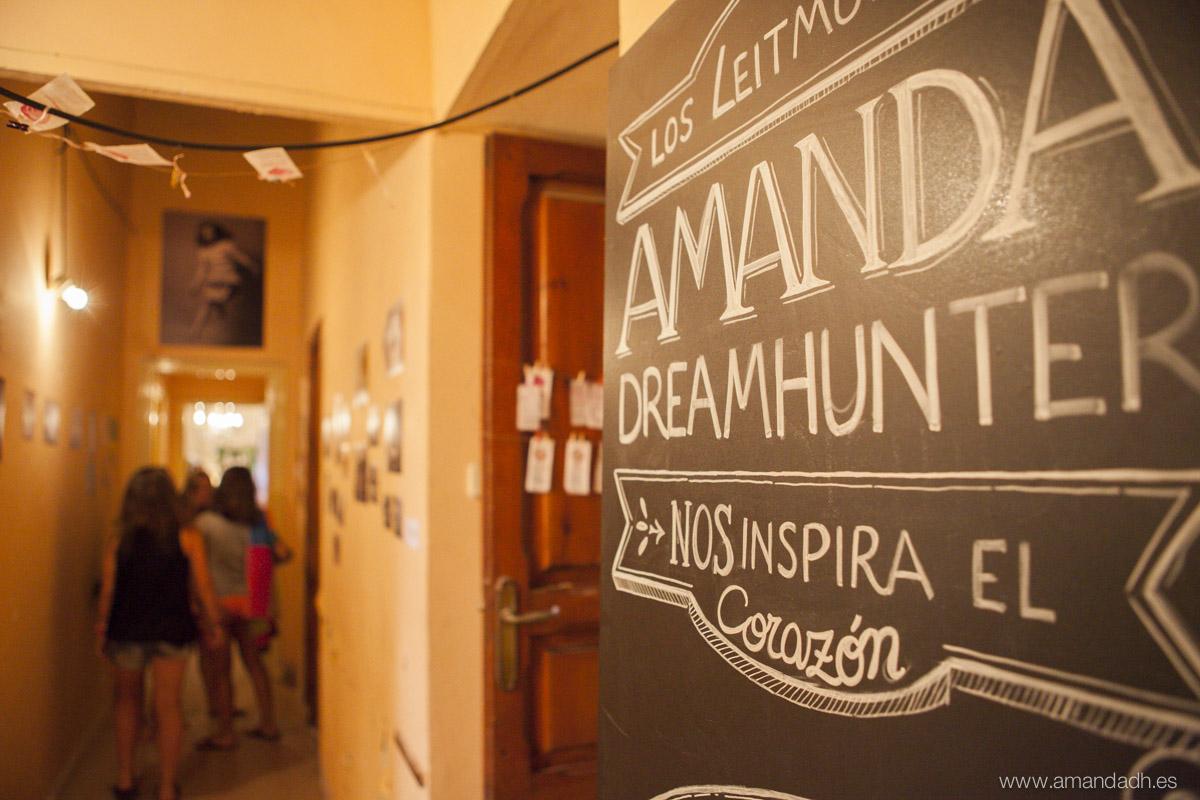 LOS LEITMO
AMANDA
DREAMHUNTER
NOS INSPIRA EL
Corazón
www.amandadh.es